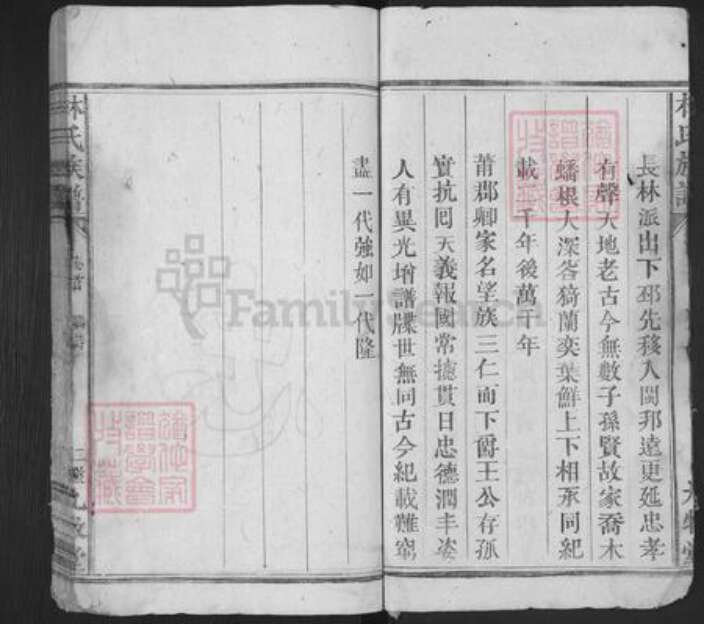 林氏族譜
長林派出下邳先移入閩邦遠更延忠孝
有聲天地老古今無數子孫賢故家喬木
蟠根大深峇猗蘭奕葉鮮上下相承同紀
載一千年後萬千年
莆郡卿家名望族三仁而下爵王公存孤
實抗囘天義報國常摅貫日忠德潤丰姿
人有異光增譜牒世無同古今紀載難窮
盡一代強如一代隆
林氏族譜
FamilySearch